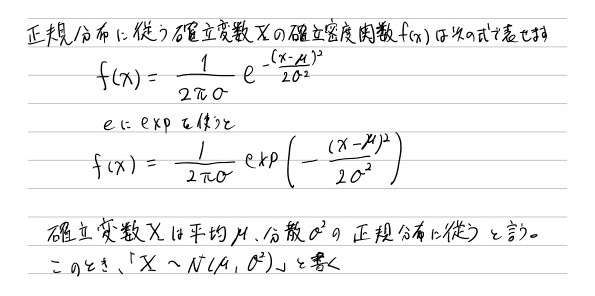 正規分布に従う確立変数Xの確立密度関数f(x)は次の式で表せます
f(x) = \frac{1}{2πσ} e^{-\frac{(x-μ)^2}{2σ^2}}
eにexpを使うと
f(x) = \frac{1}{2πσ} exp(-\frac{(x-μ)^2}{2σ^2})
確立変数Xは平均μ、分散σ²の正規分布に従うと言う。
このとき、「X ~ N(μ, σ²)」と書く